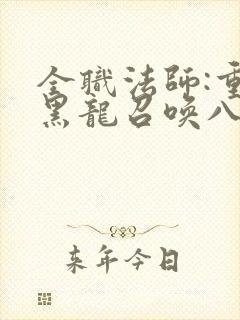 全職法師:重
黑龍召喚八
来年今日